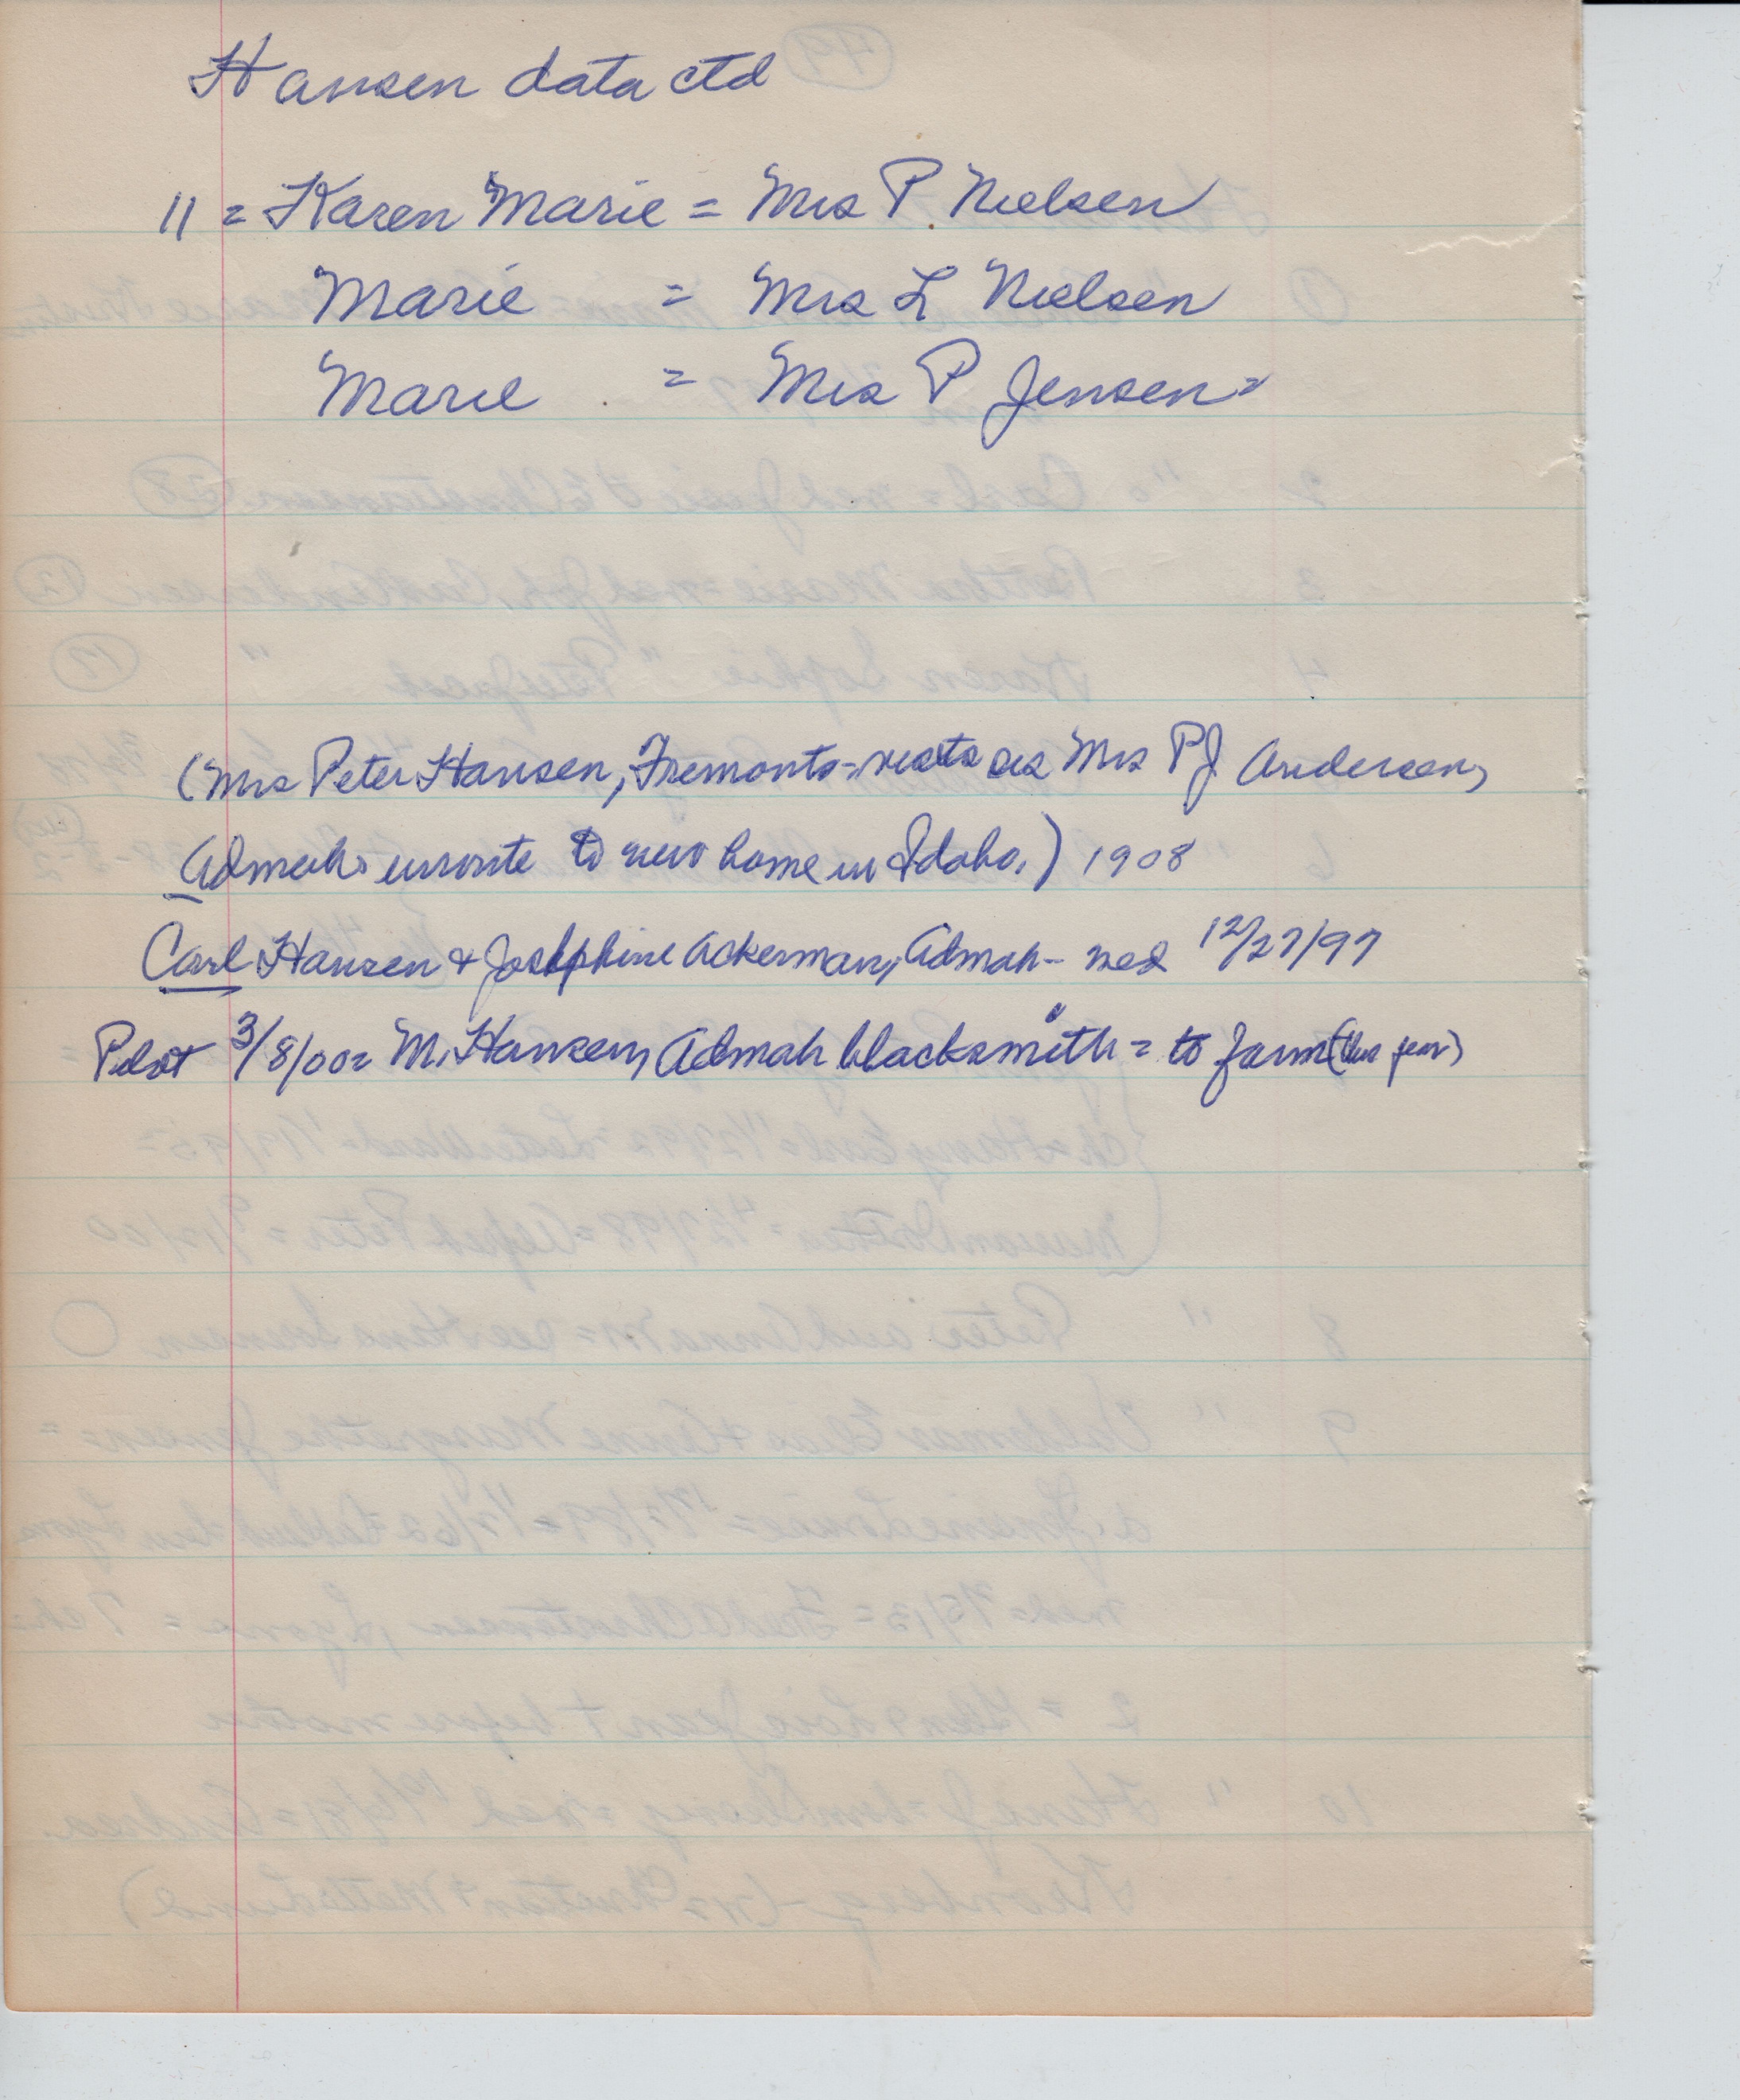 Hansen data ctd
11 = Karen Marie = Mrs P. Nielsen
Marie = Mrs L Nielsen
Marie = Mrs P Jensen =
(Mrs Peter Hansen, Fremont - visits as Mrs P J Andersen,
Admah enroute to new home in Idaho.) 1908
Carl Hansen & Josephine Ackerman, Admah - med 12/27/97
Pilot 3/8/00 = M. Hansen, Admah blacksmith = to farm (this year)